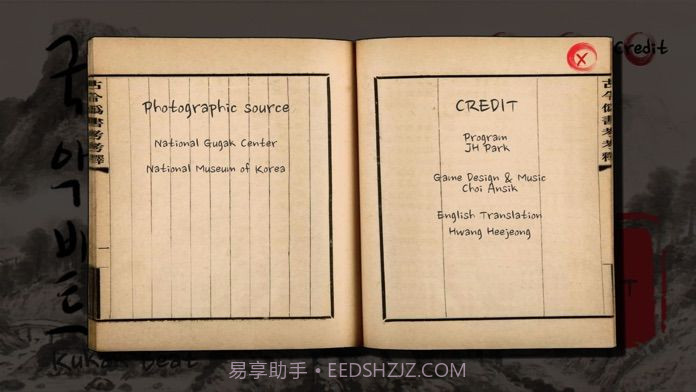 국
악
비
트
Kukak Beat
Credit
X
Photographic source
National Gugak Center
National Museum of Korea
CREDIT
Program
JH Park
Game Design & Music
Choi Ansik
English Translation
Hwang Heejeong
T
易享助手 • EEDSHZJZ.COM